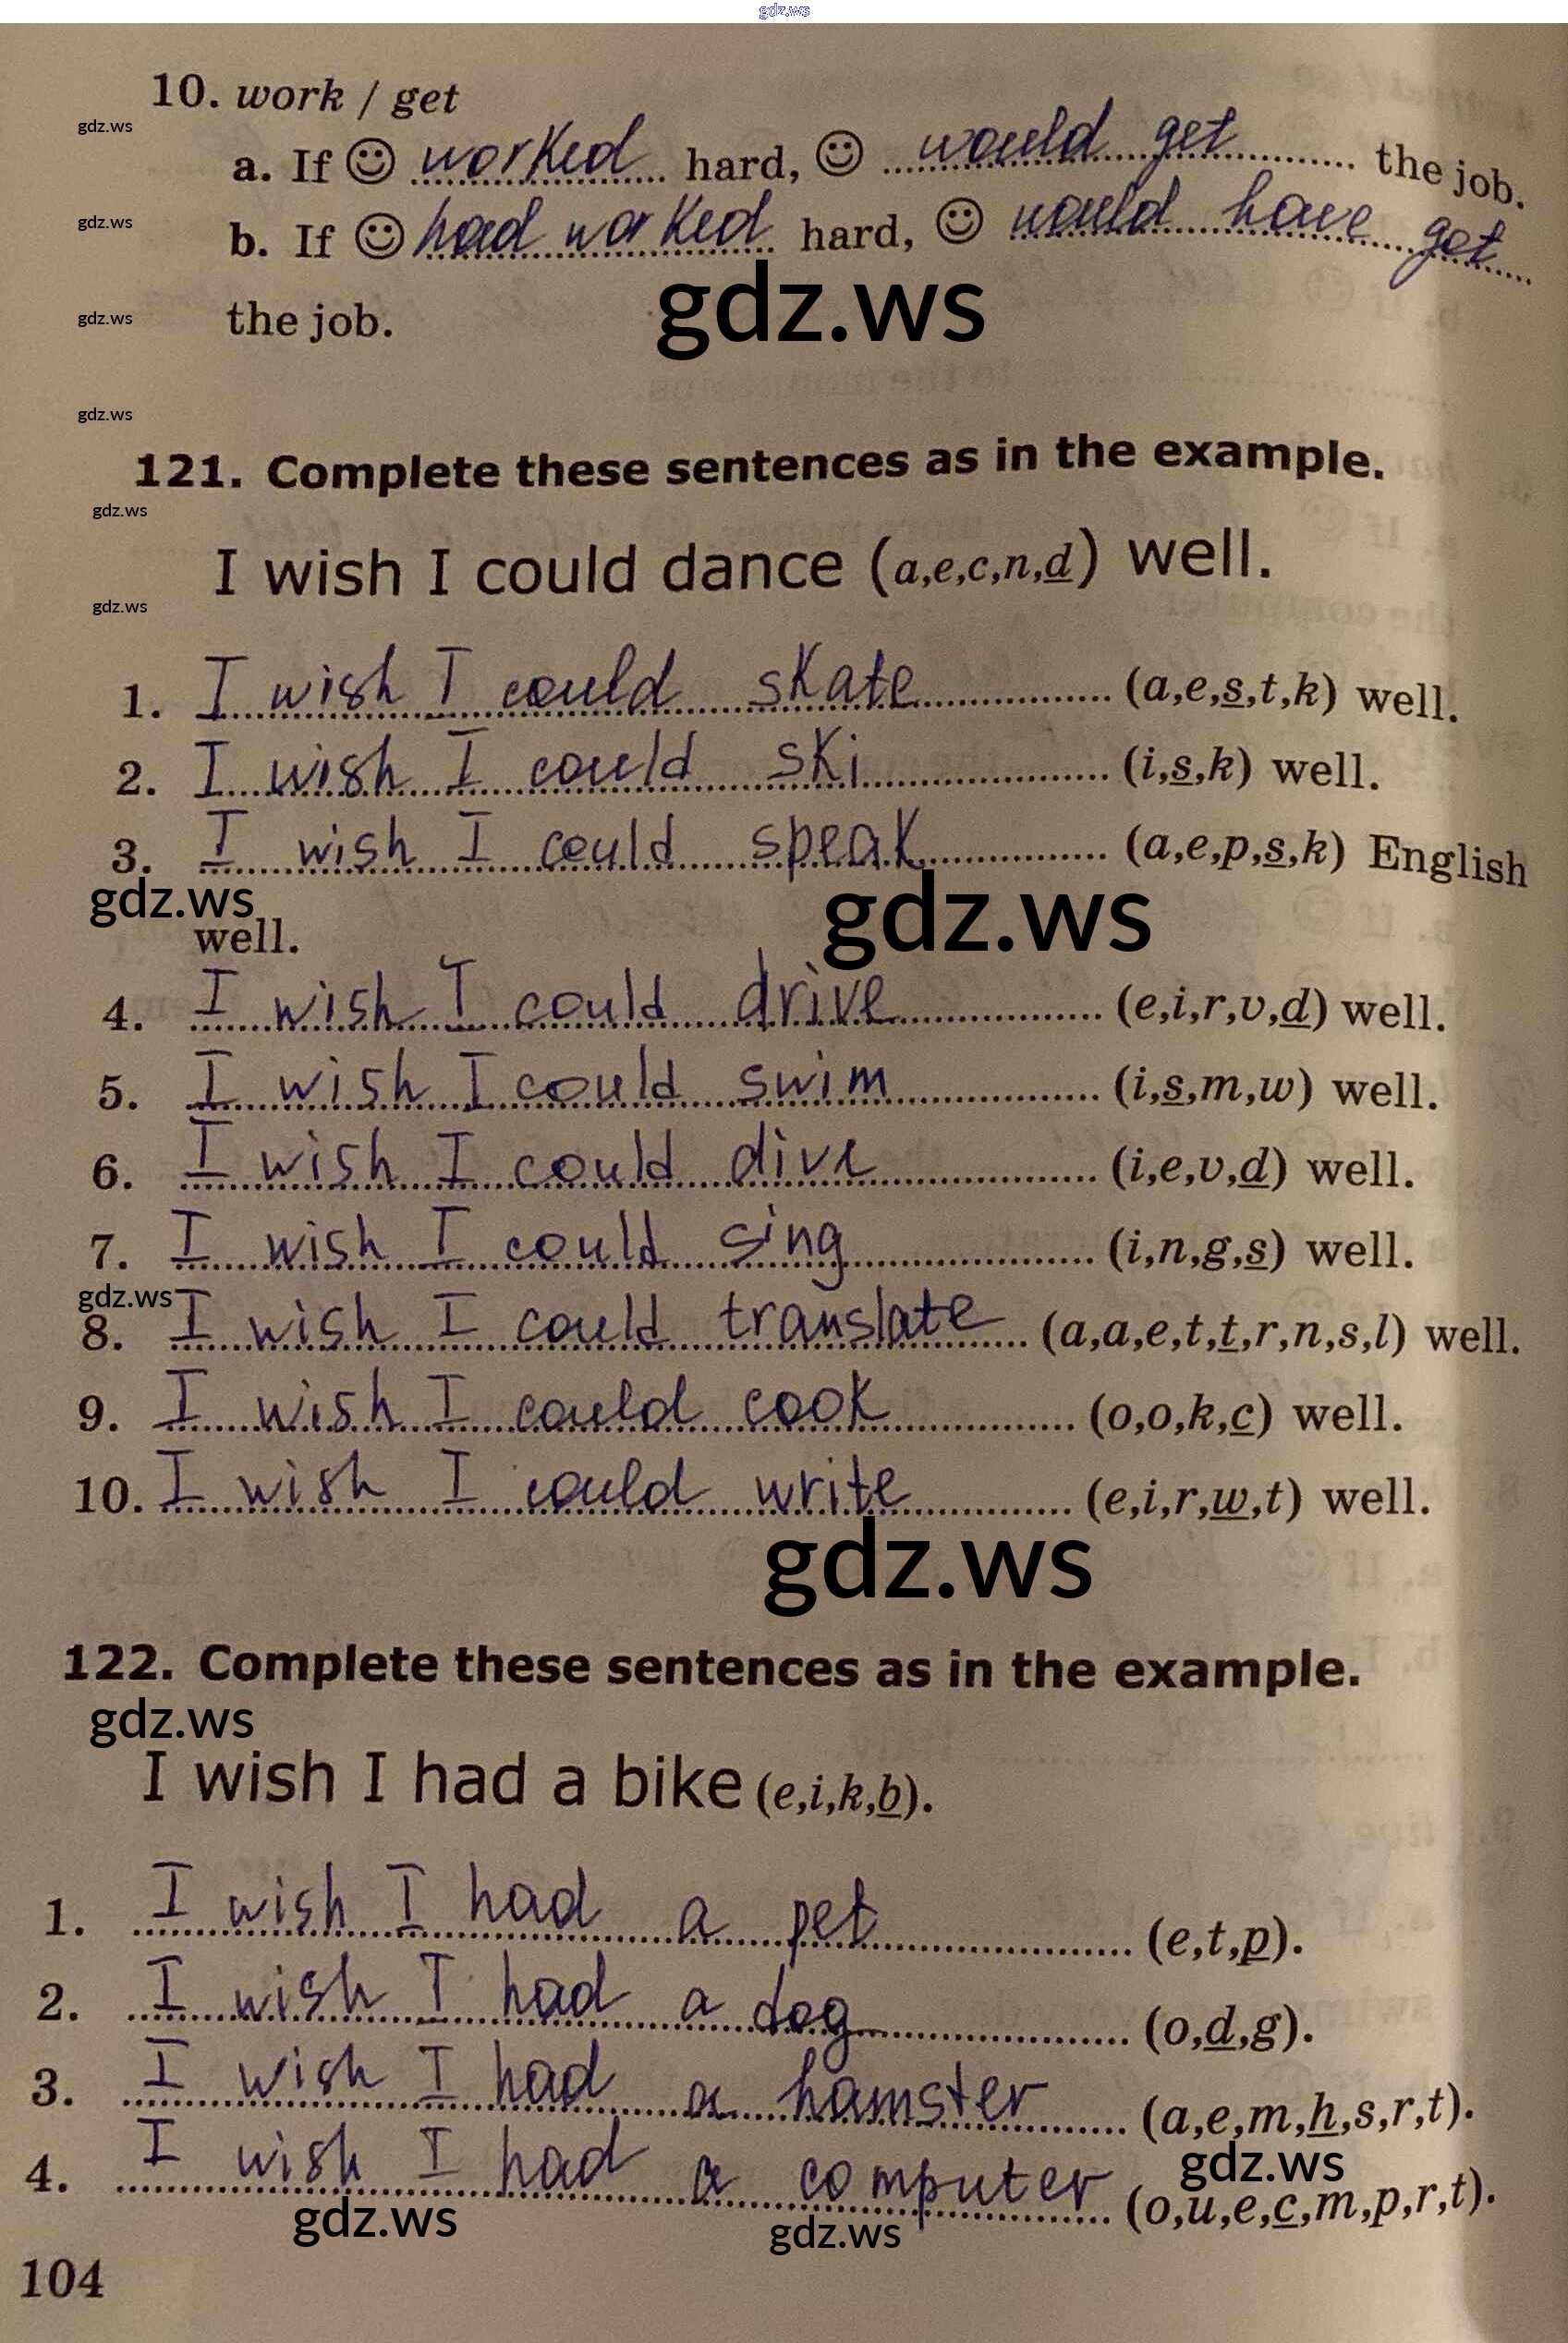 gdz.ws
10. work / get
gdz.ws
a. If ☺ worked hard, ☺ would get the job.
gdz.ws
b. If ☺ had worked hard, ☺ would have got
gdz.ws
the job.
gdz.ws
gdz.ws
121. Complete these sentences as in the example.
gdz.ws
I wish I could dance (a,e,c,n,d) well.
gdz.ws
1. I wish I could skate (a,e,s,t,k) well.
2. I wish I could ski (i,s,k) well.
3. I wish I could speak (a,e,p,s,k) English
gdz.ws
gdz.ws
well.
4. I wish I could drive (e,i,r,v,d) well.
5. I wish I could swim (i,s,m,w) well.
6. I wish I could dive (i,e,v,d) well.
7. I wish I could sing (i,n,g,s) well.
gdz.ws
8. I wish I could translate (a,a,e,t,t,r,n,s,l) well.
9. I wish I could cook (o,o,k,c) well.
10. I wish I could write (e,i,r,w,t) well.
gdz.ws
122. Complete these sentences as in the example.
gdz.ws
I wish I had a bike (e,i,k,b).
1. I wish I had a pet (e,t,p).
2. I wish I had a dog (o,d,g).
3. I wish I had a hamster (a,e,m,h,s,r,t).
gdz.ws
4. I wish I had a computer (o,u,e,c,m,p,r,t).
gdz.ws
gdz.ws
104